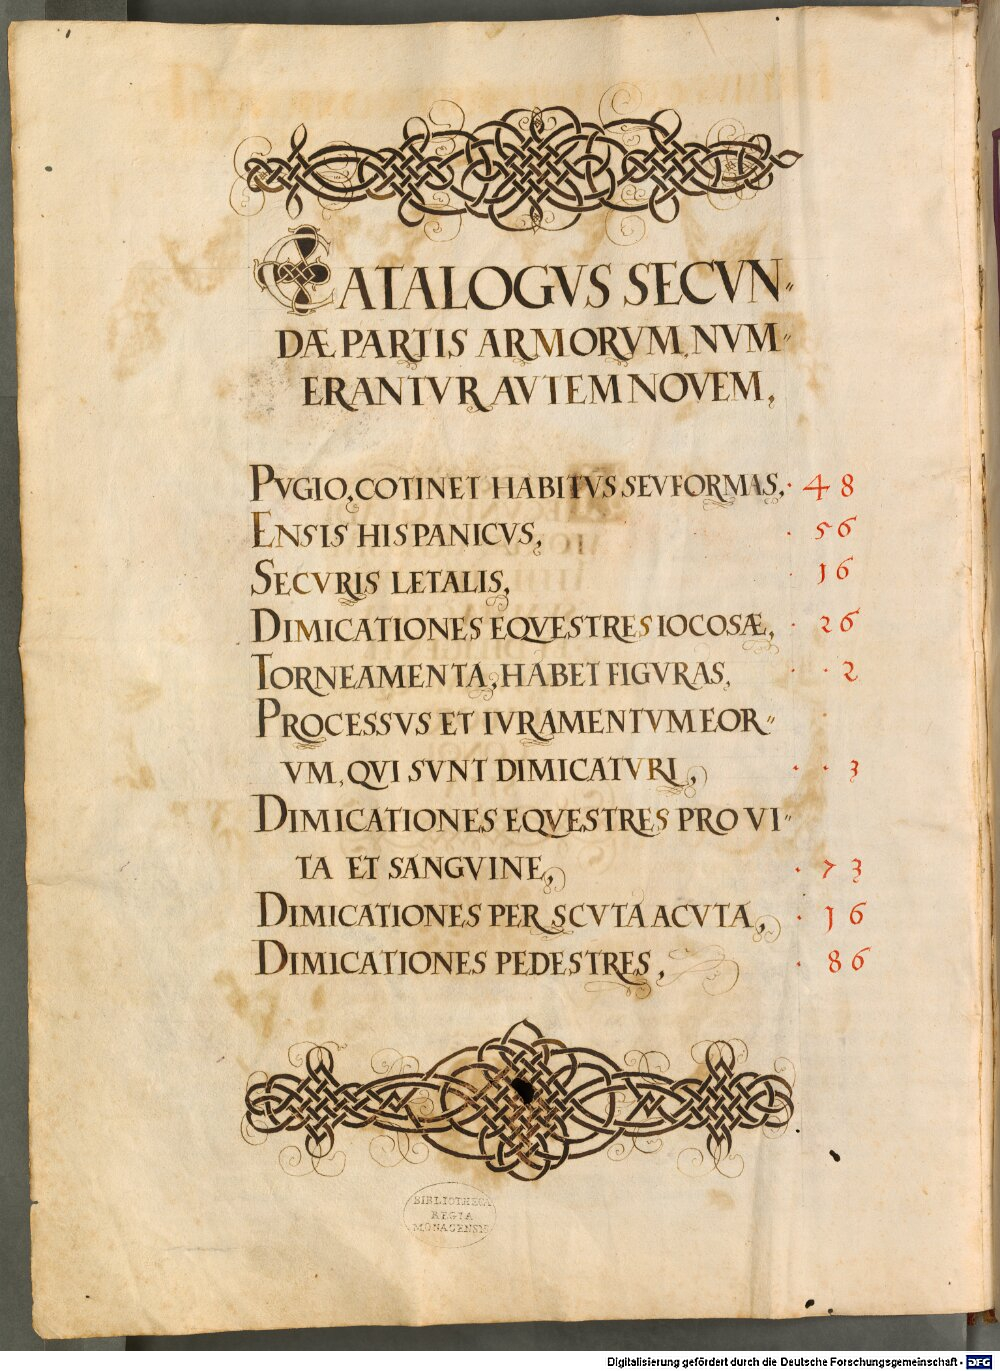 CATALOGVS SECVN"
DÆ PARTIS ARMORVM, NVM"
ERANTVR AVTEM NOVEM,
PVGIO, COTINET HABITVS SEV FORMAS, · 48
ENSIS HISPANICVS, · 56
SECVRIS LETALIS, · 16
DIMICATIONES EQVESTRES IOCOSÆ, · 26
TORNEAMENTA, HABET FIGVRAS, · · 2
PROCESSVS ET IVRAMENTVM EOR"
VM, QVI SVNT DIMICATVRI, · · 3
DIMICATIONES EQVESTRES PRO VI"
TA ET SANGVINE, · 73
DIMICATIONES PER SCVTA ACVTA, · 16
DIMICATIONES PEDESTRES, · 86
BIBLIOTHECA
REGIA
MONACENSIS
Digitalisierung gefördert durch die Deutsche Forschungsgemeinschaft - DFG